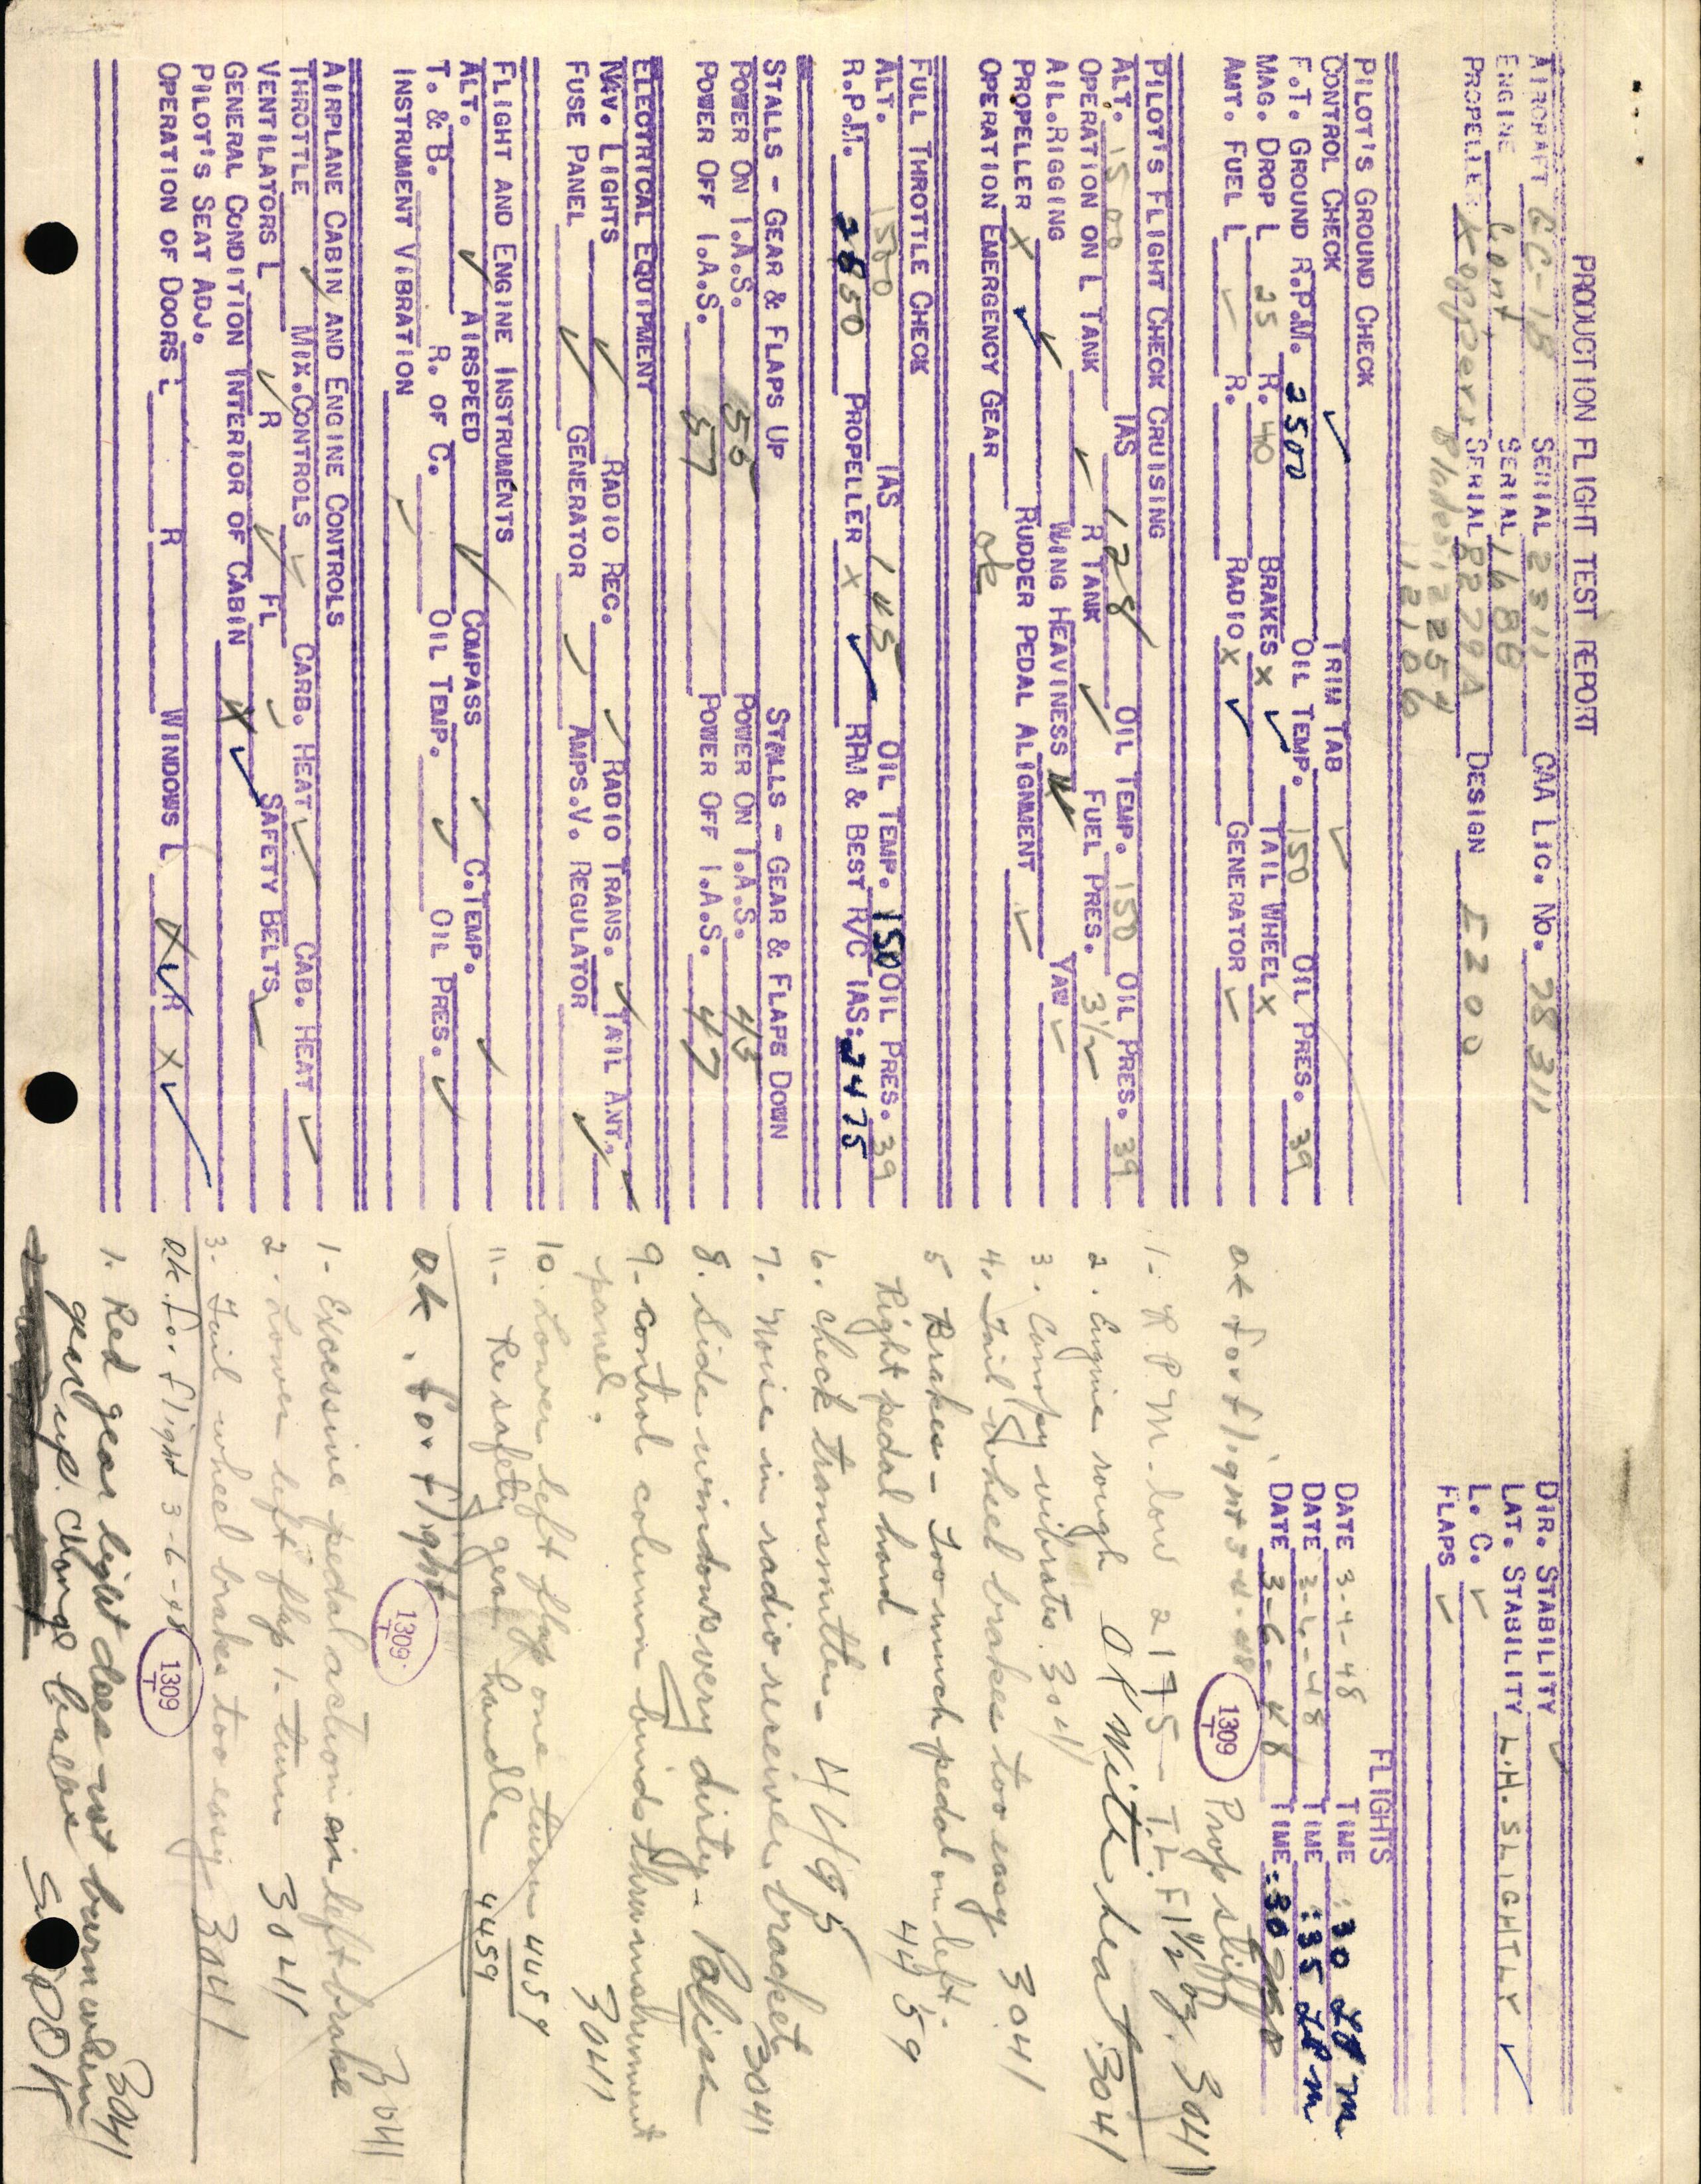 PRODUCTION FLIGHT TEST REPORT
AIRCRAFT GC-1B SERIAL 2311 CAA LIC. NO. 78311
ENGINE Cont. SERIAL L688
PROPELLER Koppers SERIAL 8279A DESIGN E200
Blades: 12254
12106
DIR. STABILITY ✓
LAT. STABILITY L.H. SLIGHTLY ✓
L. C. ✓
FLAPS ✓
PILOT'S GROUND CHECK
CONTROL CHECK ✓ TRIM TAB ✓
F.T. GROUND R.P.M. 2500 OIL TEMP. 150 OIL PRES. 39
MAG. DROP L 25 R. 40 BRAKES X ✓ TAIL WHEEL X
AMT. FUEL L ✓ R. RADIO X ✓ GENERATOR ✓
PILOT'S FLIGHT CHECK CRUISING
ALT. 1500 IAS 128 OIL TEMP. 150 OIL PRES. 39
OPERATION ON L TANK ✓ R TANK ✓ FUEL PRES. 3½
AIL.RIGGING ✓ WING HEAVINESS YAW ✓
PROPELLER X ✓ RUDDER PEDAL ALIGNMENT ✓
OPERATION EMERGENCY GEAR ok
FULL THROTTLE CHECK
ALT. 1500 IAS 145 OIL TEMP. 150 OIL PRES. 39
R.P.M. 2650 PROPELLER X ✓ RPM & BEST R/C IAS: 2475
STALLS - GEAR & FLAPS UP STALLS - GEAR & FLAPS DOWN
POWER ON I.A.S. POWER ON I.A.S. 43
POWER OFF I.A.S. 57 POWER OFF I.A.S. 47
ELECTRICAL EQUIPMENT
NAV. LIGHTS ✓ RADIO REC. ✓ RADIO TRANS. ✓ TAIL ANT. ✓
FUSE PANEL ✓ GENERATOR ✓ AMPS.V. REGULATOR ✓
FLIGHT AND ENGINE INSTRUMENTS
ALT. ✓ AIRSPEED ✓ COMPASS ✓ C.TEMP. ✓
T. & B. R. OF C. OIL TEMP. ✓ OIL PRES. ✓
INSTRUMENT VIBRATION ✓
AIRPLANE CABIN AND ENGINE CONTROLS
THROTTLE ✓ MIX.CONTROLS ✓ CARB. HEAT ✓ CAB. HEAT ✓
VENTILATORS L ✓ R ✓ FL ✓ SAFETY BELTS ✓
GENERAL CONDITION INTERIOR OF CABIN X ✓
PILOT'S SEAT ADJ.
OPERATION OF DOORS L R WINDOWS L X ✓ R X ✓
FLIGHTS
DATE 3-4-48 TIME :30
DATE TIME :35
DATE 3-6-48 TIME :30
Ok for flight 3-4-48 1309 T Prop stiff
1- R.P.M. low 2175- T.L.F 1½ oz. 3041
2. Engine rough OK With heat. 3041
3. Canopy vibrates. 3041
4. Tail wheel brakes too easy 3041
5 Brakes - Too much pedal on left.
Right pedal hard - 4459
6. check transmitter - 4495
7. Noise in radio receiver bracket 3041
8. Side windows very dirty - Polish
9- control column binds thru instrument
panel. 3041
10. Lower left flap one turn 4459
11- Re safety gear handle 4459
ok. for flight 1309 T
1- Excessive pedal action on left brake 3041
2. Lower left flap 1- turn 3041
3. Tail wheel brakes too easy 3041
ok. for flight 3-6-48 1309 T
1. Red gear light does not burn when 3041
gear up. change bulbs